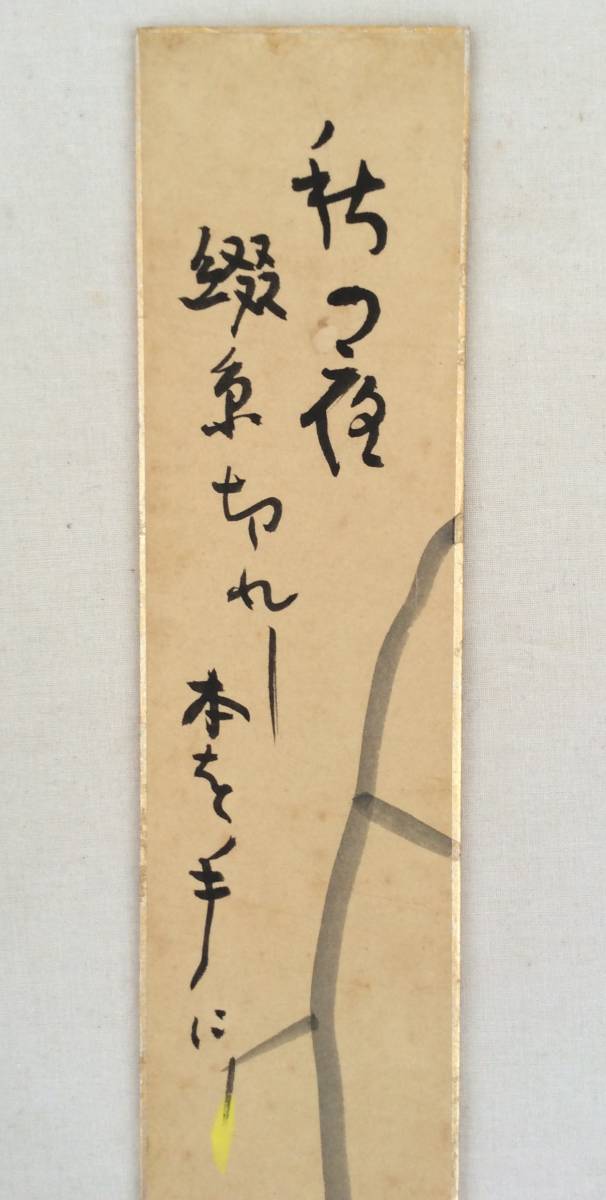 秋の夜
綴糸切れし
本を手に